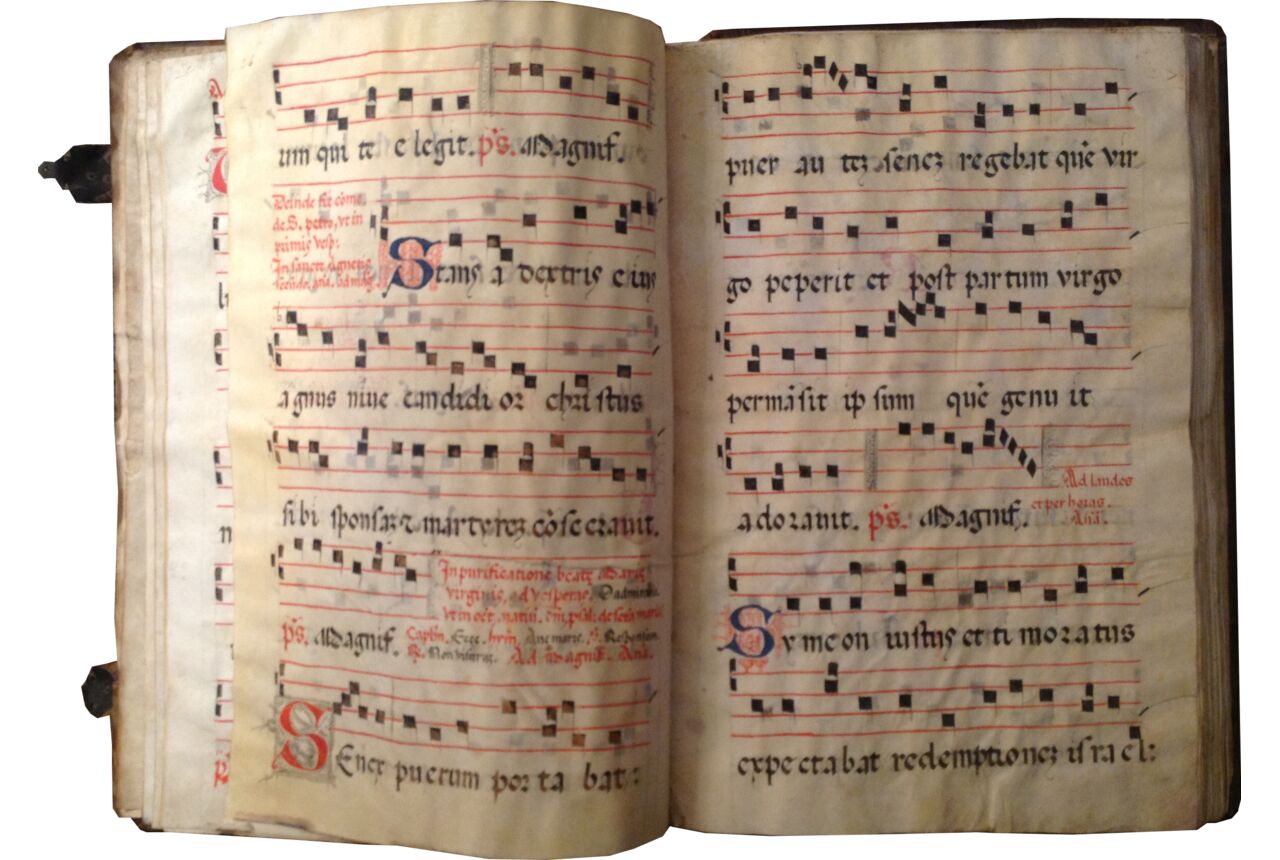 um qui te e legit. ps. Magnif.
Deinde fit côme.
de S. petro, vt in
primis vesp:
In sancte Agnetis
secundo, ana. ad mag.
Stans a dextris e ius
a gnus niue candidi or christus
sibi sponsaz & martyrez côse crauit.
In purificatione beate Marie
virginis, ad vesperas,
vt in oct. natiui.
ps. Magnif. Capl'm, Ecce. hym̄, Aue maris.
Ad Magnif. Ana.
Senex puerum por ta bat:
puer au tez senez regebat quê vir
go peperit et post partum virgo
permâsit ip sum quê genu it
Ad laudes
et per horas
Ana.
adorauit. ps. Magnif.
Symeon iustus et ti moratus
expectabat redemptionez israel: